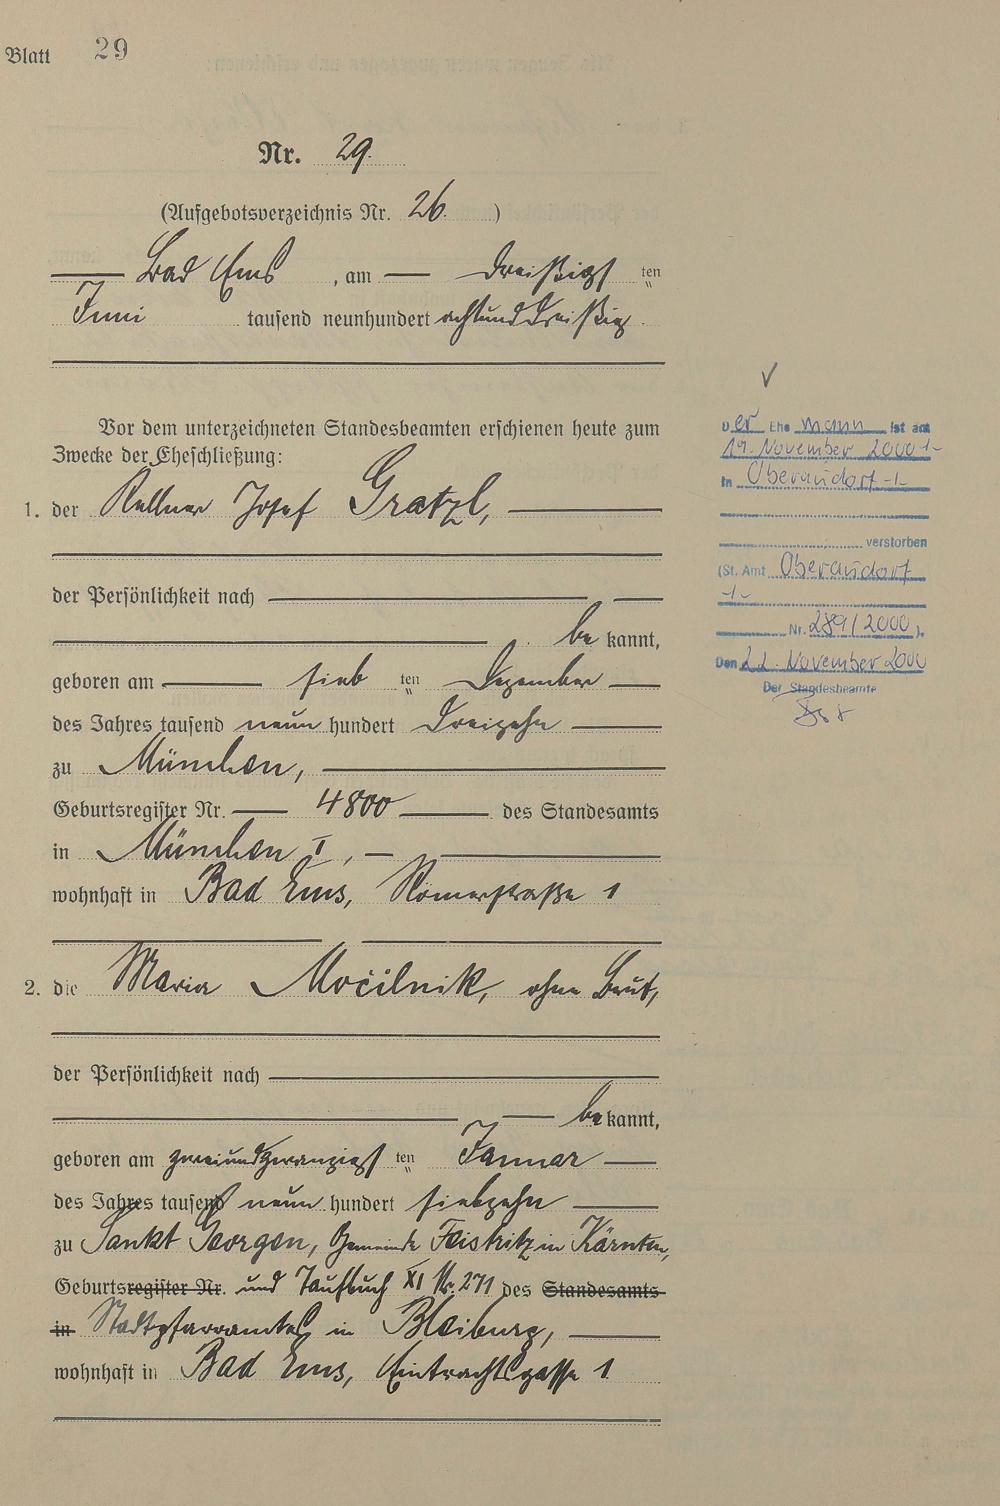 Blatt 29
Nr. 29.
(Aufgebotsverzeichnis Nr. 26. )
Bad Ems, am dreißigsten
Juni tausend neunhundert achtunddreißig.
Vor dem unterzeichneten Standesbeamten erschienen heute zum
Zwecke der Eheschließung:
1. der Kellner Josef Gratzl,
der Persönlichkeit nach
bekannt,
geboren am siebten Dezember
des Jahres tausend neun hundert dreizehn
zu München,
Geburtsregister Nr. 4800 des Standesamts
in München I,
wohnhaft in Bad Ems, Römerstraße 1
2. die Maria Močilnik, ohne Beruf,
der Persönlichkeit nach
bekannt,
geboren am zweiundzwanzigsten Januar
des Jahres tausend neun hundert siebzehn
zu Sankt Georgen, Gemeinde Feistritz in Kärnten,
Geburtsregister Nr. und Taufbuch XI Nr. 271 des Standesamts
in Stadtpfarramtes in Bleiburg,
wohnhaft in Bad Ems, Eintrachtsgasse 1
Der Ehemann ist am
19. November 2000 -/-
in Oberaudorf -/-
verstorben
(St. Amt Oberaudorf
-/-
Nr. 289/2000).
Den 22. November 2000
Der Standesbeamte